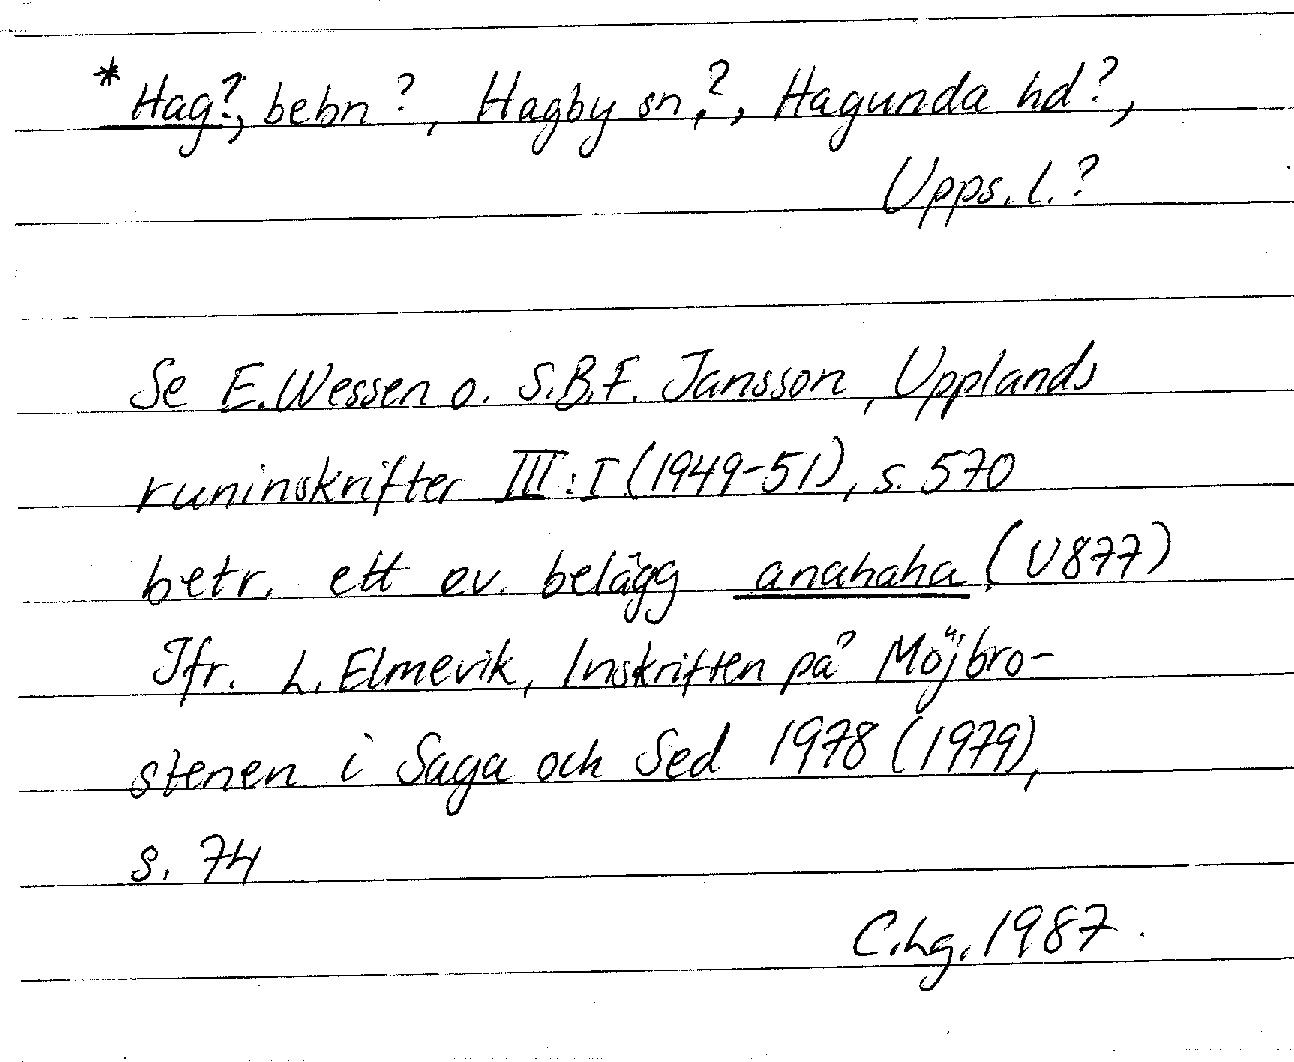 *Hag?, bebn?, Hagby sn?, Hagunda hd?,
Upps. l.?
Se E. Wessen o. S.B.F. Jansson, Upplands
runinskrifter III:I (1949-51), s. 570
betr. ett ev. belägg anahaha (U877)
Jfr. L. Elmevik, Inskriften på Möjbro-
stenen i Saga och Sed 1978 (1979),
s. 74
C.Lg. 1987.